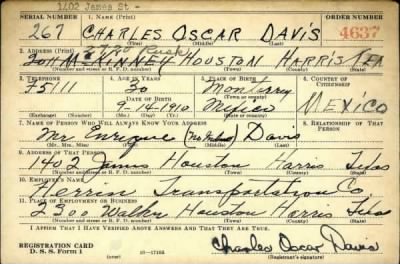 1402 James St -
SERIAL NUMBER 1. NAME (Print) ORDER NUMBER
267 CHARLES OSCAR DAVIS 4637
(First) (Middle) (Last)
2. ADDRESS (Print)
Rusk
MCKINNEY HOUSTON HARRIS TEX
(Number and street or R. F. D. number) (Town) (County) (State)
3. TELEPHONE 4. AGE IN YEARS 5. PLACE OF BIRTH 6. COUNTRY OF CITIZENSHIP
F5111 30 Monterrey
DATE OF BIRTH (Town or county)
9-14-1910 Mexico MEXICO
(Exchange) (Number) (Mo.) (Day) (Yr.) (State or country)
7. NAME OF PERSON WHO WILL ALWAYS KNOW YOUR ADDRESS 8. RELATIONSHIP OF THAT PERSON
Mr Enrique Davis
(Mr., Mrs., Miss) (First) (Middle) (Last)
9. ADDRESS OF THAT PERSON
1402 James Houston Harris Texas
(Number and street or R. F. D. number) (Town) (County) (State)
10. EMPLOYER'S NAME
Herrin Transportation Co
11. PLACE OF EMPLOYMENT OR BUSINESS
2300 Houston Harris Texas
(Number and street or R. F. D. number) (Town) (County) (State)
I AFFIRM THAT I HAVE VERIFIED ABOVE ANSWERS AND THAT THEY ARE TRUE.
REGISTRATION CARD
D. S. S. Form 1 Charles Oscar Davis
(Registrant's signature)